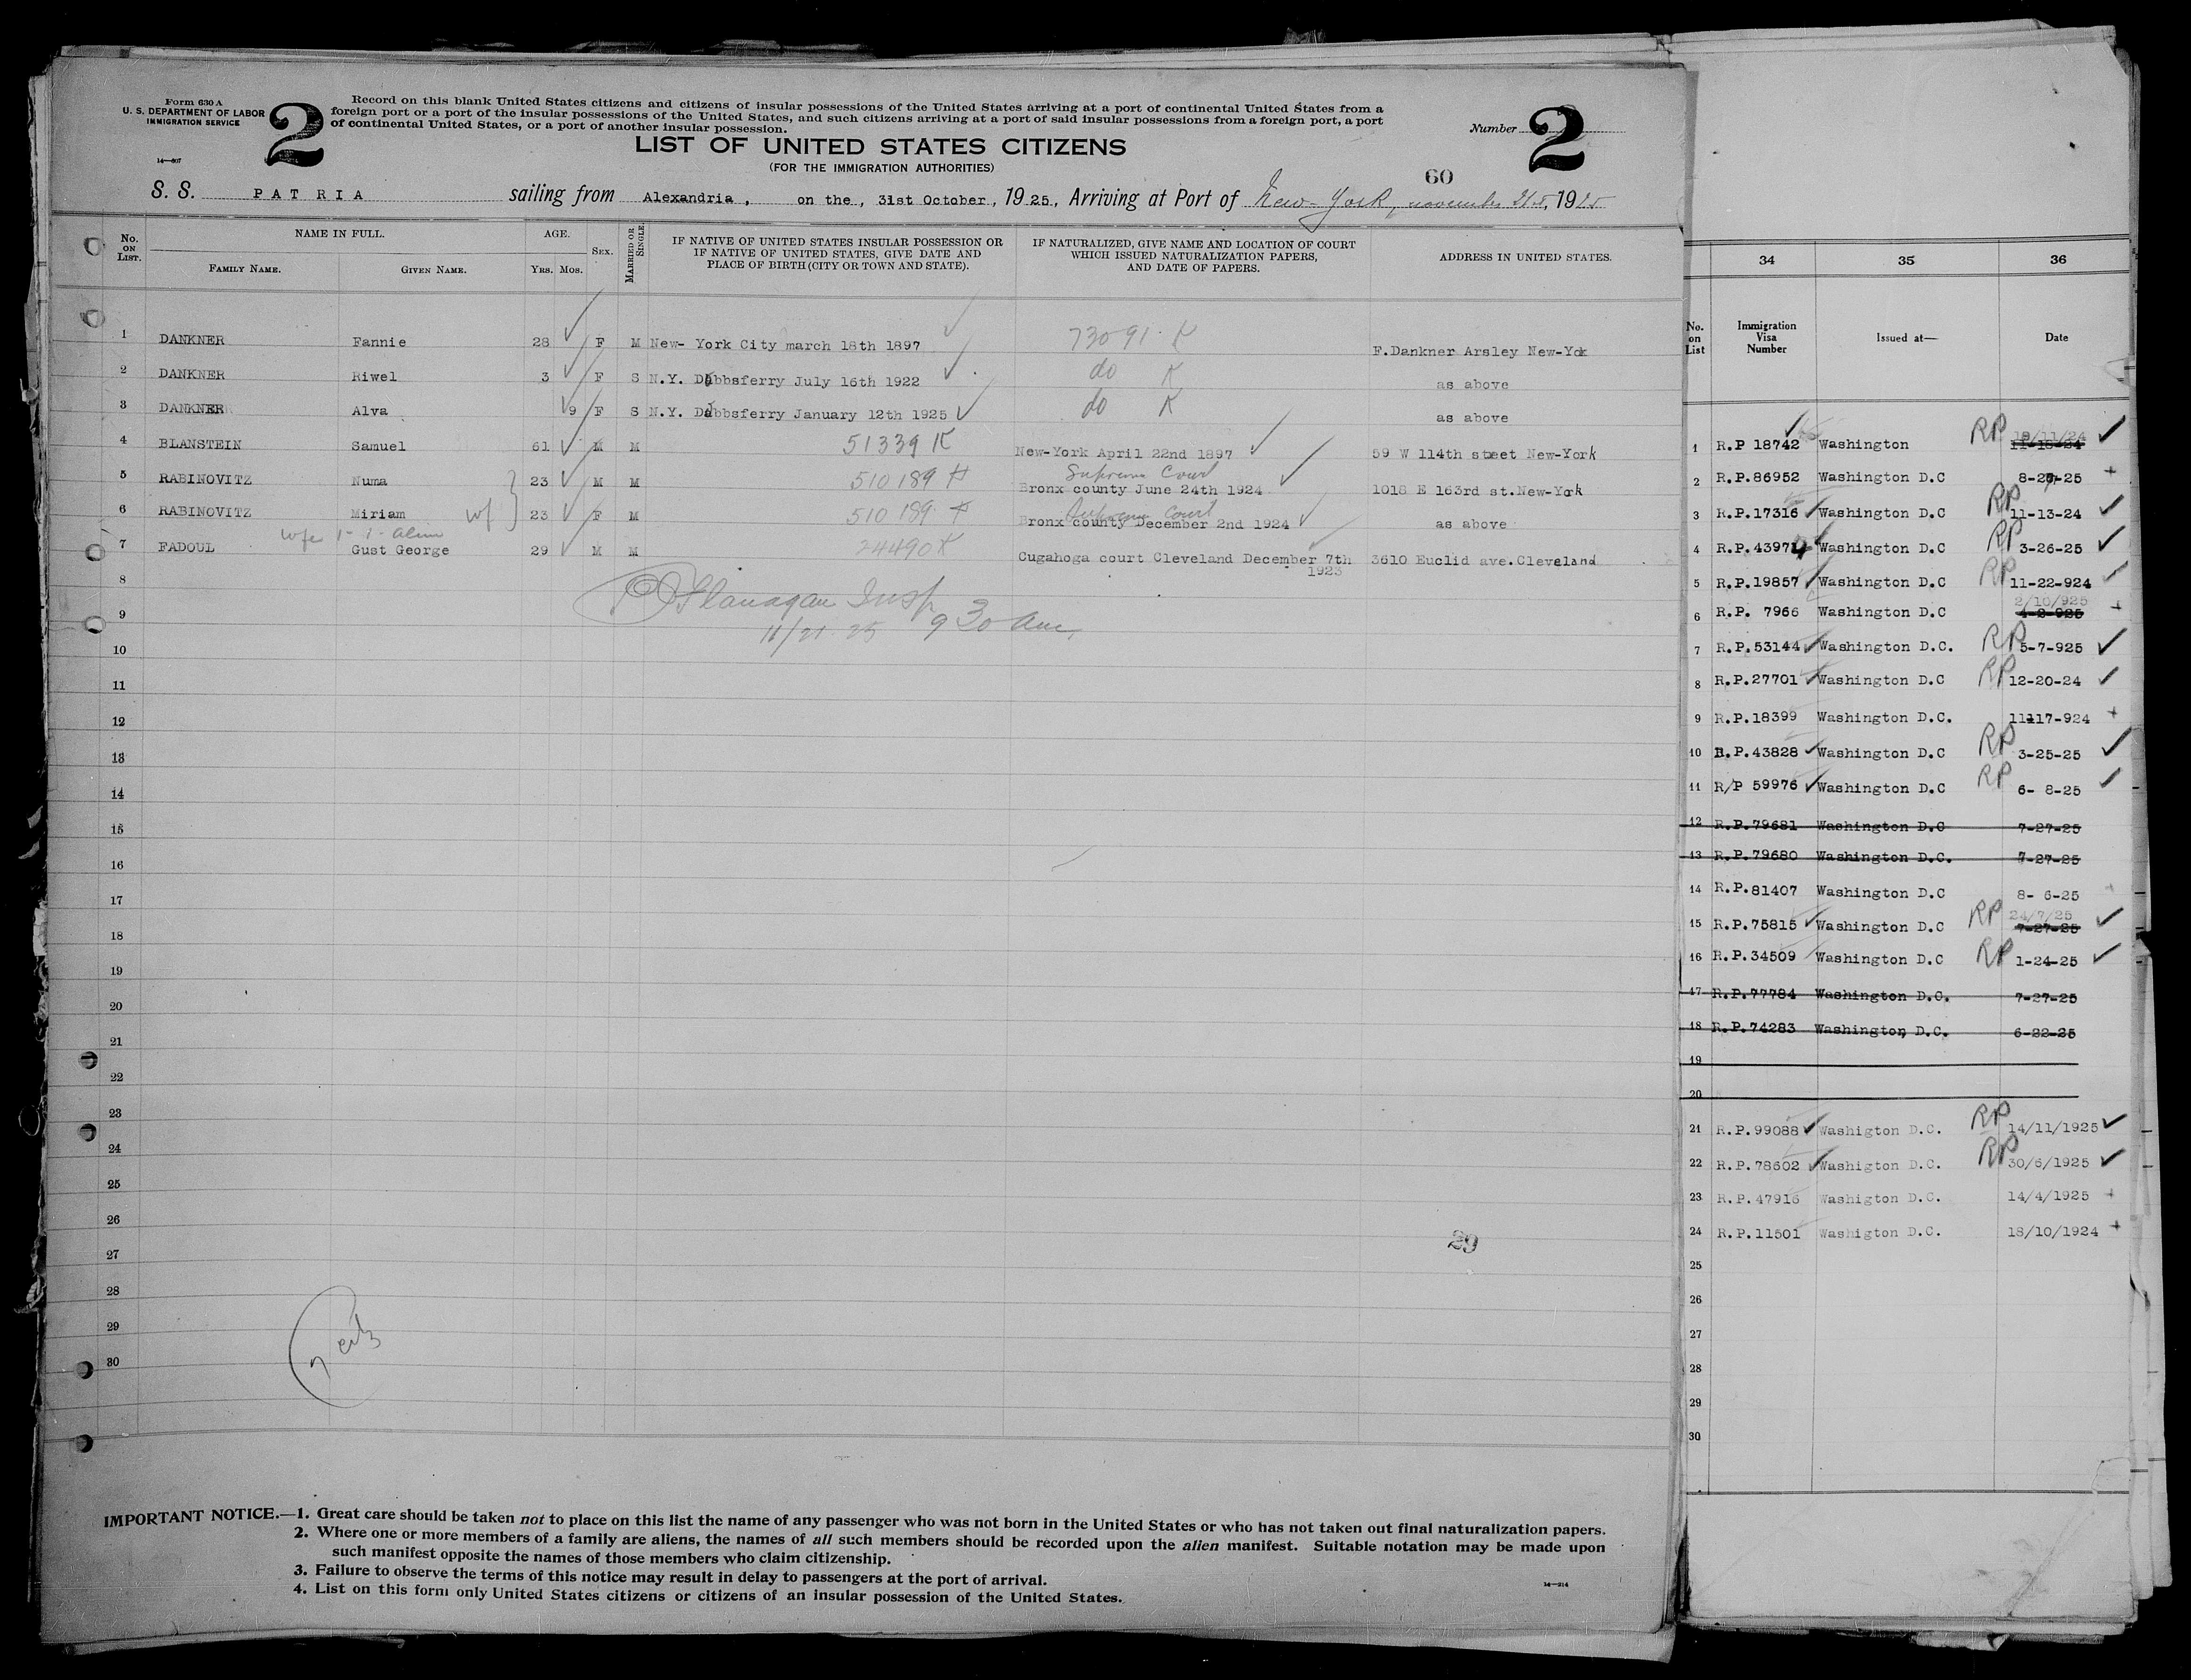 Form 630 A
U. S. DEPARTMENT OF LABOR
IMMIGRATION SERVICE
14—607
2
Record on this blank United States citizens and citizens of insular possessions of the United States arriving at a port of continental United States from a
foreign port or a port of the insular possessions of the United States, and such citizens arriving at a port of said insular possessions from a foreign port, a port
of continental United States, or a port of another insular possession.
Number 2
LIST OF UNITED STATES CITIZENS
(FOR THE IMMIGRATION AUTHORITIES)
60
S. S. PATRIA sailing from Alexandria, on the, 31st October, 1925, Arriving at Port of New-York, november 21st, 1925
No. on List. NAME IN FULL. AGE. Sex. Married or Single. IF NATIVE OF UNITED STATES INSULAR POSSESSION OR IF NATIVE OF UNITED STATES, GIVE DATE AND PLACE OF BIRTH (CITY OR TOWN AND STATE). IF NATURALIZED, GIVE NAME AND LOCATION OF COURT WHICH ISSUED NATURALIZATION PAPERS, AND DATE OF PAPERS. ADDRESS IN UNITED STATES.
Family Name. Given Name. Yrs. Mos.
1 DANKNER Fannie 28 F M New- York City march 18th 1897 73091 K F.Dankner Arsley New-Yok
2 DANKNER Riwel 3 F S N.Y. Dobbsferry July 16th 1922 do K as above
3 DANKNER Alva 9 F S N.Y. Dobbsferry January 12th 1925 do K as above
4 BLANSTEIN Samuel 61 M M 51339 K New-York April 22nd 1897 59 W 114th steet New-York
5 RABINOVITZ Numa 23 M M 510189 Supreme Court Bronx county June 24th 1924 1018 E 163rd st.New-York
6 RABINOVITZ Miriam wf 23 F M 510189 Supreme Court Bronx county December 2nd 1924 as above
wife
7 FADOUL Gust George 29 M M 24490 K Cugahoga court Cleveland December 7th 1923 3610 Euclid ave.Cleveland
8
Flanagan Insp
9
11/21 25 9 30 am
10
11
12
13
14
15
16
17
18
19
20
21
22
23
24
25
26
29
27
28
29
30
IMPORTANT NOTICE.—1. Great care should be taken not to place on this list the name of any passenger who was not born in the United States or who has not taken out final naturalization papers.
2. Where one or more members of a family are aliens, the names of all such members should be recorded upon the alien manifest. Suitable notation may be made upon
such manifest opposite the names of those members who claim citizenship.
3. Failure to observe the terms of this notice may result in delay to passengers at the port of arrival.
4. List on this form only United States citizens or citizens of an insular possession of the United States.
14—214
34 35 36
No. on List Immigration Visa Number Issued at— Date
1 R.P 18742 Washington RP 11-15-24
2 R.P.86952 Washington D.C 8-25
3 R.P.17316 Washington D.C RP 11-13-24
4 R.P.43974 Washington D.C RP 3-26-25
5 R.P.19857 Washington D.C RP 11-22-924
2/10/925
6 R.P. 7966 Washington D.C 4-2-925
7 R.P.53144 Washington D.C. RP 5-7-925
8 R.P.27701 Washington D.C RP 12-20-24
9 R.P.18399 Washington D.C. 11117-924
10 R.P.43828 Washington D.C RP 3-25-25
11 R/P 59976 Washington D.C RP 6- 8-25
12 R.P.79681 Washington D.C 7-27-25
13 R.P.79680 Washington D.C. 7-27-25
14 R.P.81407 Washington D.C 8- 6-25
24/7/25
15 R.P.75815 Washington D.C RP 7-27-25
16 R.P.34509 Washington D.C RP 1-24-25
17 R.P.77784 Washington D.C. 7-27-25
18 R.P.74283 Washington D.C. 6-22-25
19
20
21 R.P.99088 Washigton D.C. RP 14/11/1925
22 R.P.78602 Washigton D.C. RP 30/6/1925
23 R.P.47916 Washigton D.C. 14/4/1925
24 R.P.11501 Washigton D.C. 18/10/1924
25
26
27
28
29
30